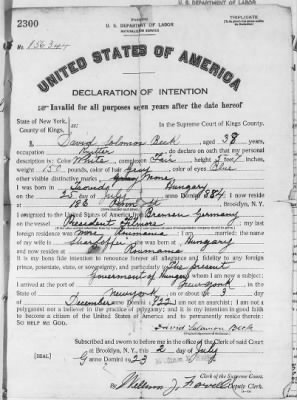 U. S. DEPARTMENT OF LABOR
TRIPLICATE
2300
U. S. DEPARTMENT OF LABOR
NATURALIZATION SERVICE
No. 156347
UNITED STATES OF AMERICA
DECLARATION OF INTENTION
Invalid for all purposes seven years after the date hereof
State of New York,
County of Kings,
In the Supreme Court of Kings County.
I, David Solomon Beck, aged 38 years,
occupation, do declare on oath that my personal
description is: Color White, complexion Fair, height 5 feet inches,
weight 150 pounds, color of hair Gray, color of eyes Blue
other visible distinctive marks None
I was born in Hungary
on the 25 day of July, anno Domini 1884; I now reside
at 188, Brooklyn, N.Y.
I emigrated to the United States of America from Bremen Germany
on the vessel President; my last
foreign residence was Rumania; I am married; the name
of my wife is; she was born at Hungary
and now resides at Roumania
It is my bona fide intention to renounce forever all allegiance and fidelity to any foreign
prince, potentate, state, or sovereignty, and particularly to The present
Government of Hungary, of whom I am now a subject;
I arrived at the port of New york, in the
State of New york, on or about the 3 day
of December, anno Domini 1922; I am not an anarchist; I am not a
polygamist nor a believer in the practice of polygamy; and it is my intention in good faith
to become a citizen of the United States of America and to permanently reside therein:
SO HELP ME GOD.
David Solomon Beck
Subscribed and sworn to before me in the office of the Clerk of said Court
at Brooklyn, N.Y., this 2 day of July
[SEAL]
anno Domini 1923
Clerk of the Supreme Court.
Deputy Clerk.